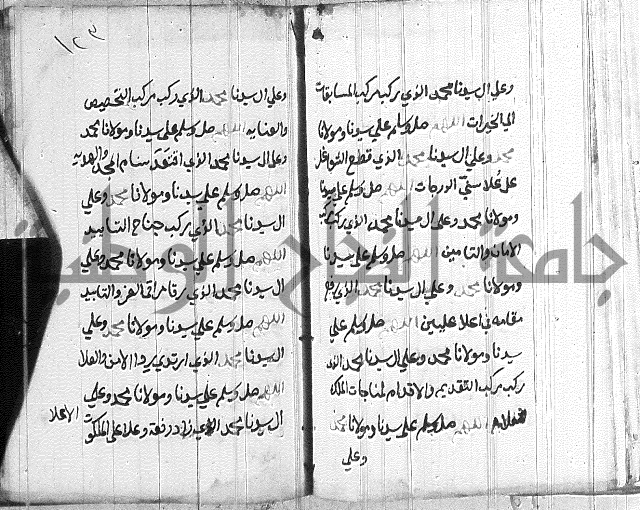 وعلي ال سيدنا محمد الذي ركب مركب المسابقات
الي الخيرات اللهم صل وسلم علي سيدنا ومولانا
محمد وعلي ال سيدنا محمد الذي قطع الشواغل
على علا سني الدرجات اللهم صل وسلم علي سيدنا
ومولانا محمد وعلي ال سيدنا محمد الذي ركب
الامان والتامين اللهم صل وسلم علي سيدنا
ومولانا محمد وعلي ال سيدنا محمد الذي رفع
مقامه في اعلا عليين اللهم صل وسلم علي
سيدنا ومولانا محمد وعلي ال سيدنا محمد الذي
ركب مركب التقديم والاقدام لمناجات الملك
العلام اللهم صل وسلم علي سيدنا ومولانا محمد
وعلي
١٢٣
وعلي ال سيدنا محمد الذي ركب مركب التخصيص
والعنايه اللهم صل وسلم علي سيدنا ومولانا محمد
وعلي ال سيدنا محمد الذي اقتعد سنام المجد والهدايه
اللهم صل وسلم علي سيدنا ومولانا محمد وعلي
ال سيدنا محمد الذي ركب جناح التاييد
اللهم صل وسلم علي سيدنا ومولانا محمد وعلي
ال سيدنا محمد الذي رقا مراقي العز والتاييد
اللهم صل وسلم علي سيدنا ومولانا محمد وعلي
ال سيدنا محمد الذي ارتدي بردا الامن والعلا
اللهم صل وسلم علي سيدنا ومولانا محمد وعلي
ال سيدنا محمد الذي زاد رفعة وعلا علي الملكوت
الاعلا
جامعة النجاح الوطنية